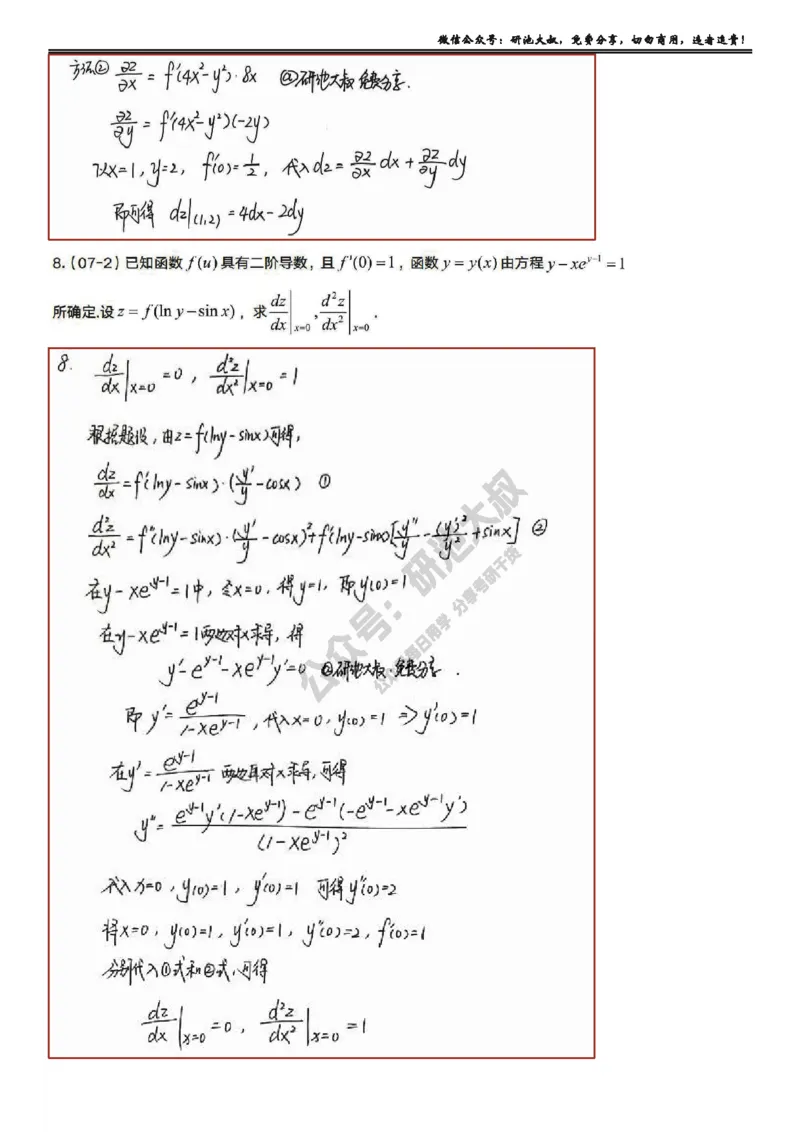 微信公众号：研池大叔，免费分享，切勿商用，违者追责！
方法② ∂z/∂x = f'(4x²-y²)·8x @研池大叔 免费分享.
∂z/∂y = f'(4x²-y²)(-2y)
以x=1, y=2, f'(0)=1/2, 代入dz = ∂z/∂x dx + ∂z/∂y dy
即可得 dz|(1,2) = 4dx-2dy
8.（07-2）已知函数 f(u) 具有二阶导数，且 f'(0)=1，函数 y=y(x) 由方程 y-xe^(y-1)=1
所确定.设 z=f(ln y-sin x)，求 dz/dx|x=0, d²z/dx²|x=0.
8. dz/dx|x=0 =0, d²z/dx²|x=0 =1
根据题设, 由z=f(lny-sinx)可得,
dz/dx = f'(lny-sinx)·(y'/y-cosx) ①
d²z/dx² = f''(lny-sinx)·(y'/y-cosx)²+f'(lny-sinx)[y''/y-(y')²/y²+sinx] ②
在y-xe^(y-1)=1中, 令x=0, 得y=1, 即y(0)=1
在y-xe^(y-1)=1两边对x求导, 得
y'-e^(y-1)-xe^(y-1)y'=0 @研池大叔 免费分享.
即 y'= e^(y-1)/(1-xe^(y-1)), 代入x=0, y(0)=1 ⇒ y'(0)=1
在y'= e^(y-1)/(1-xe^(y-1)) 两边再对x求导, 可得
y''= [e^(y-1)y'(1-xe^(y-1))-e^(y-1)(-e^(y-1)-xe^(y-1)y')]/(1-xe^(y-1))²
代入x=0, y(0)=1, y'(0)=1 可得y''(0)=2
将x=0, y(0)=1, y'(0)=1, y''(0)=2, f'(0)=1
分别代入①式和②式, 可得
dz/dx|x=0 =0, d²z/dx²|x=0 =1
公众号：研池大叔